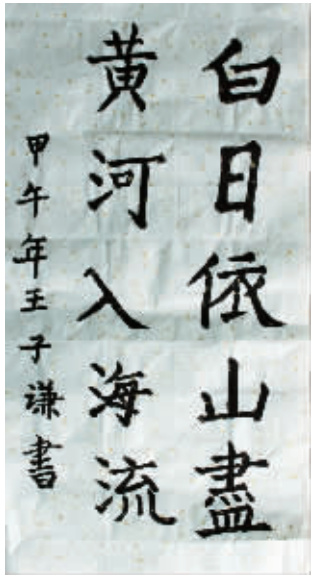 白日依山盡
黄河入海流
甲午年王子谦書